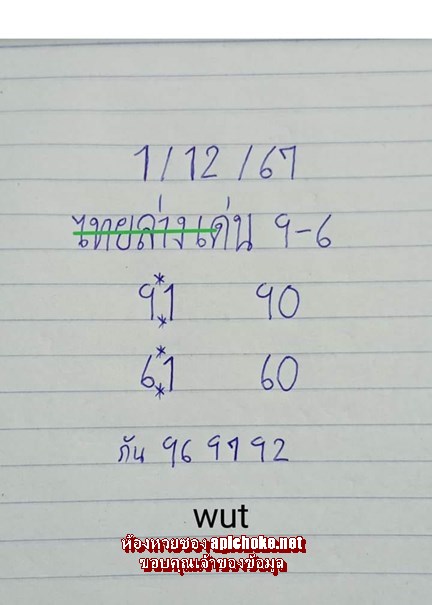 1/12/67
ไทยล่างเด่น 9-6
*
91 90
*
*
61 60
*
กัน 96 97 92
wut
ห้องหวยซอง apichoke.net
ขอบคุณเจ้าของข้อมูล